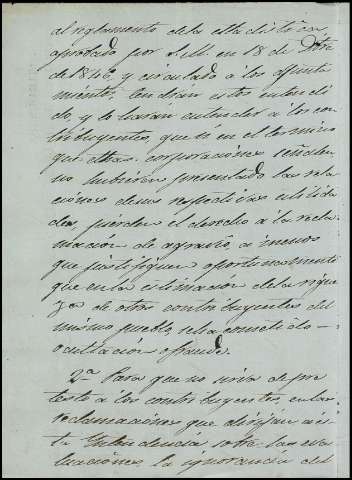 al reglamento de la estadistica
aprobado por S.M. en 18 de Dbre
de 1846, y circulado á los Ayunta
mientos, tendrán esto entendi
do, y le harán entender á los con
tribuyentes, que si en el termino
que estas corporaciones señalen
no hubieren presentado las rela
ciones de sus respectivas utilida
des, pierden el derecho á la recla
macion de agravio, á menos
que justifiquen oportunamente
que en la estimacion de la rique
za de otros contribuyentes del
mismo pueblo, se ha cometido
ocultacion o fraude.
2ª Para que no sirva de pre
testo a los contribuyentes en las
reclamaciones que dirijan á es
ta Intendencia sobre las eva
luaciones la ignorancia del